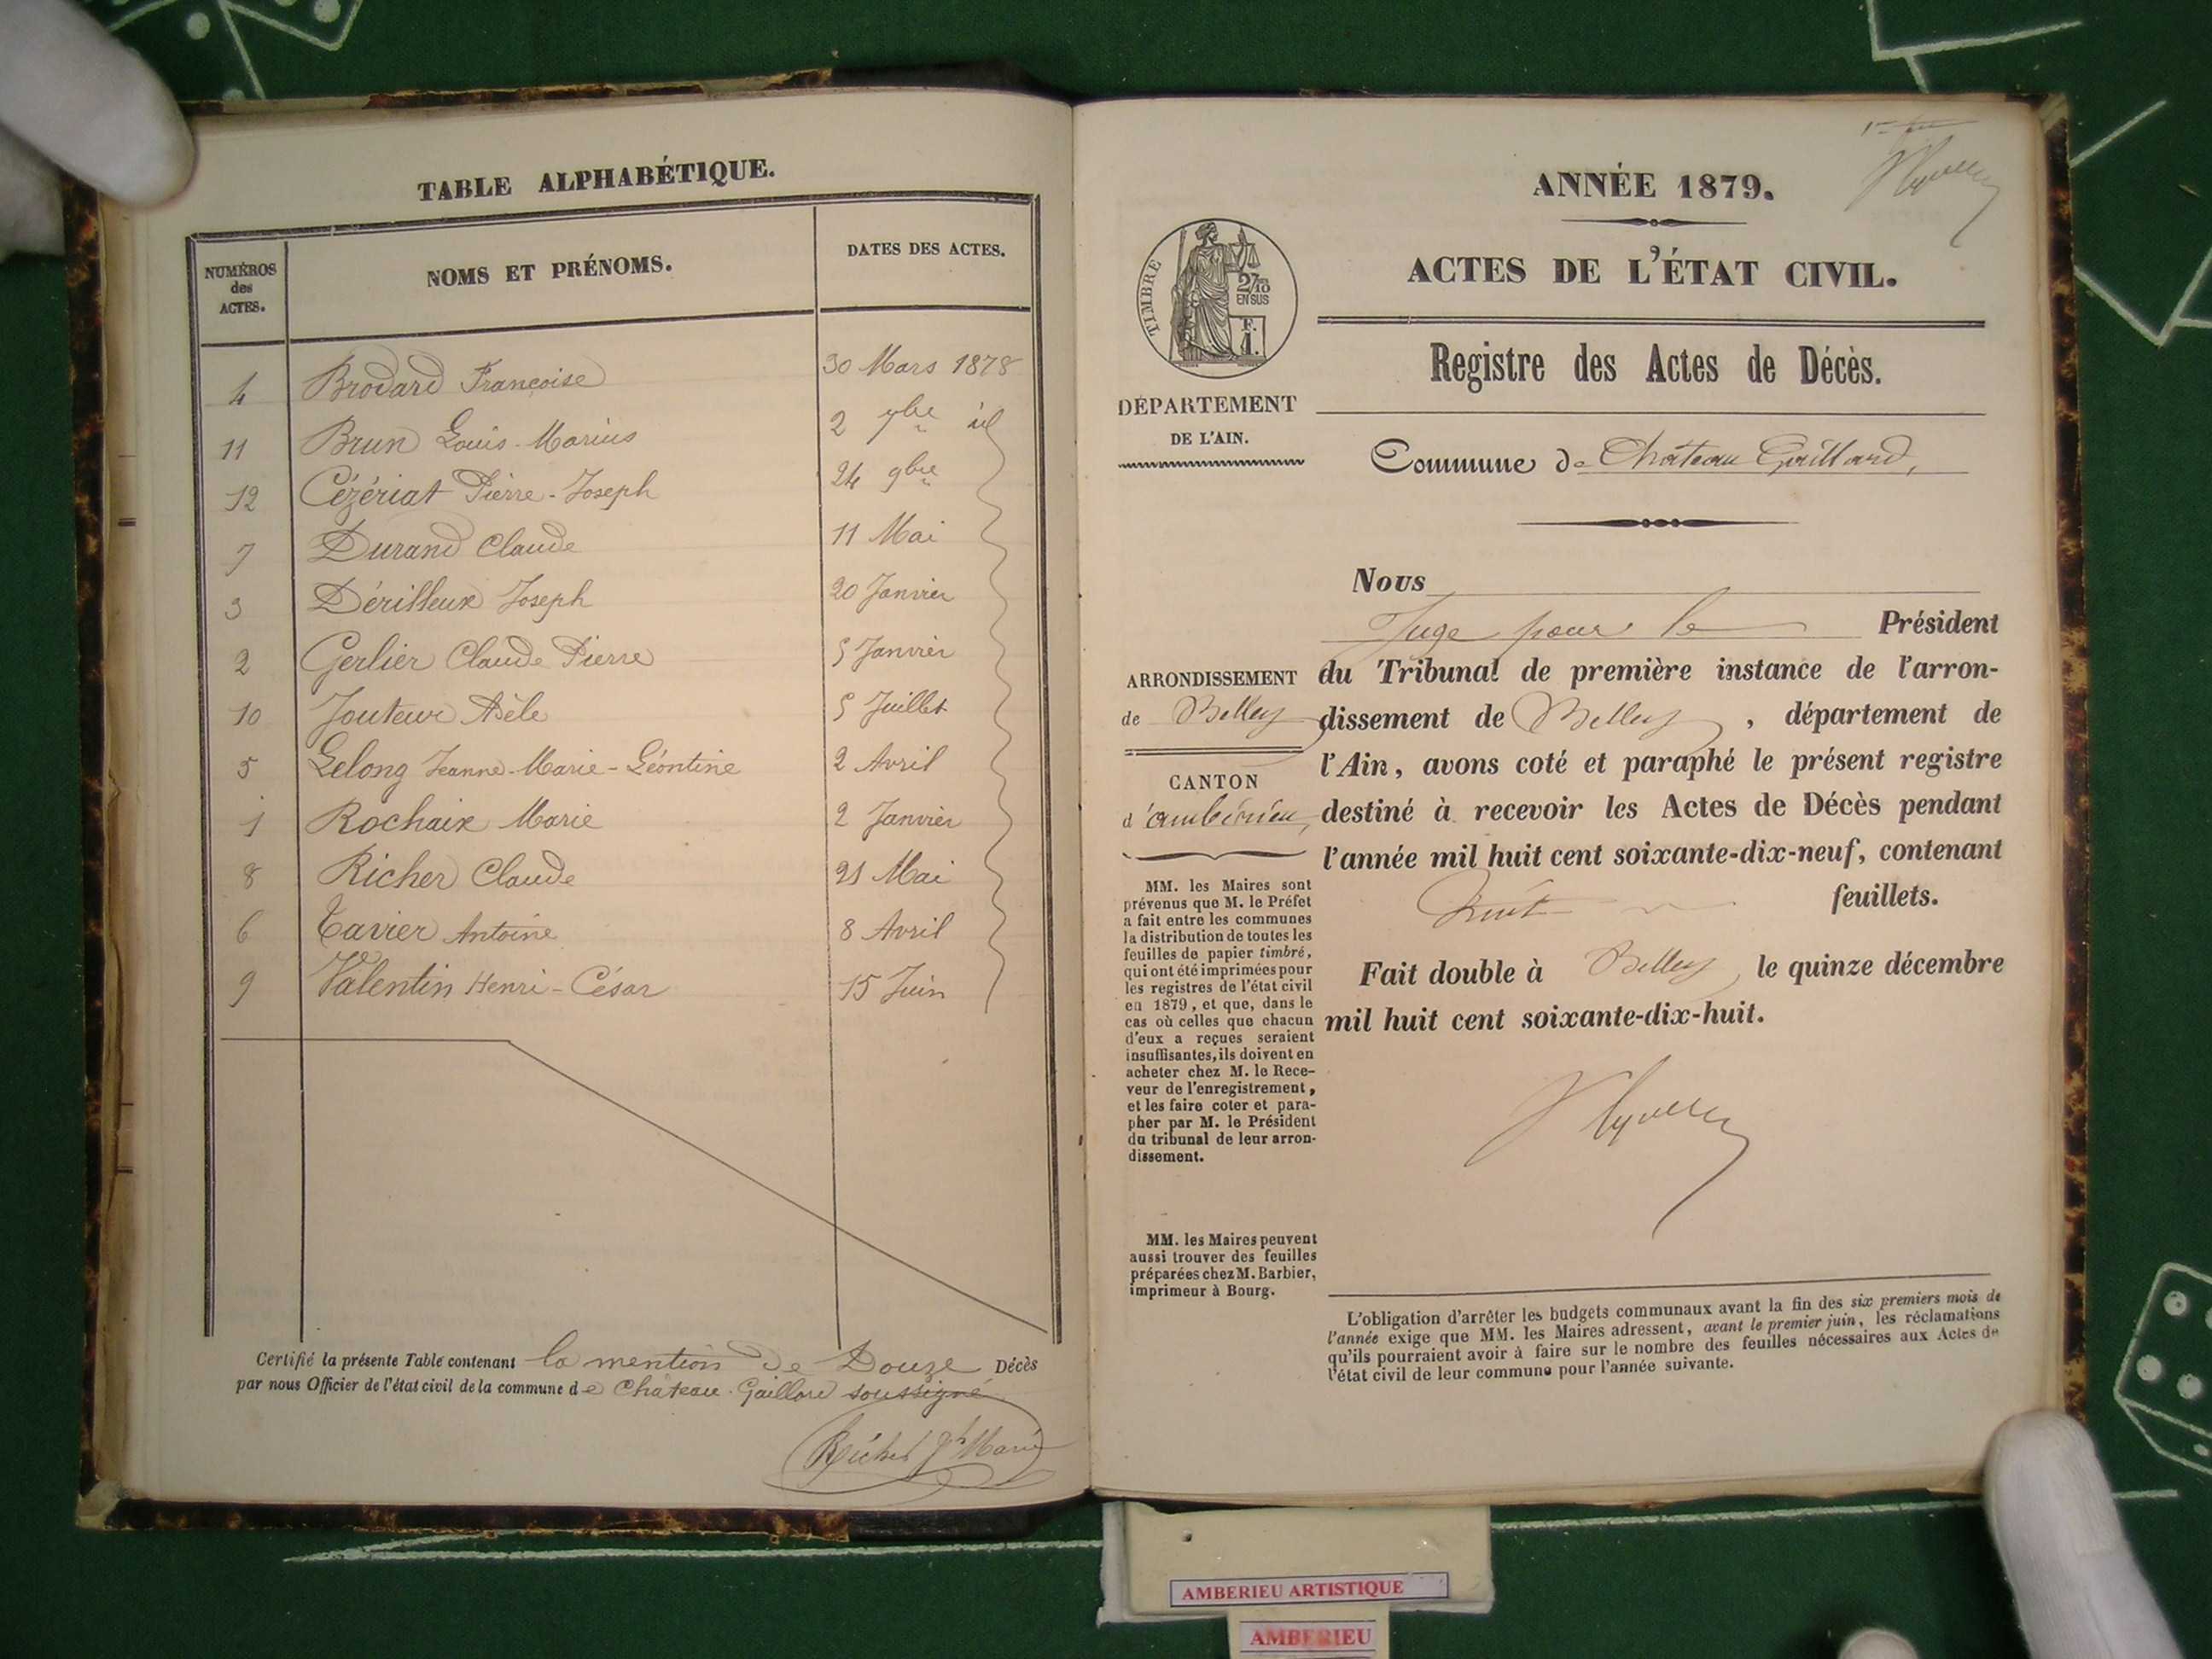 TABLE ALPHABÉTIQUE.
NUMÉROS des ACTES. NOMS ET PRÉNOMS. DATES DES ACTES.
4 Brodard Françoise 30 Mars 1878
11 Brun Louis-Marius 2 7bre id
12 Cézériat Pierre-Joseph 24 9bre
7 Durand Claude 11 Mai
3 Dérilleux Joseph 20 Janvier
2 Gerlier Claude Pierre 5 Janvier
10 Jouteur Adèle 5 Juillet
5 Lelong Jeanne-Marie-Léontine 2 Avril
1 Rochaix Marie 2 Janvier
8 Richer Claude 21 Mai
6 Tavier Antoine 8 Avril
9 Valentin Henri-César 15 Juin
Certifié la présente Table contenant la mention de Douze Décès
par nous Officier de l'état civil de la commune de Château-Gaillard soussigné
ANNÉE 1879.
ACTES DE L'ÉTAT CIVIL.
Registre des Actes de Décès.
Commune de Château Gaillard,
TIMBRE
2/10 EN SUS
F. 1.
DÉPARTEMENT
DE L'AIN.
ARRONDISSEMENT
de Belley
CANTON
d'ambérieu,
MM. les Maires sont
prévenus que M. le Préfet
a fait entre les communes
la distribution de toutes les
feuilles de papier timbré,
qui ont été imprimées pour
les registres de l'état civil
en 1879, et que, dans le
cas où celles que chacun
d'eux a reçues seraient
insuffisantes, ils doivent en
acheter chez M. le Rece-
veur de l'enregistrement,
et les faire coter et para-
pher par M. le Président
du tribunal de leur arron-
dissement.
MM. les Maires peuvent
aussi trouver des feuilles
préparées chez M. Barbier,
imprimeur à Bourg.
Nous
Juge pour le Président
du Tribunal de première instance de l'arron-
dissement de Belley, département de
l'Ain, avons coté et paraphé le présent registre
destiné à recevoir les Actes de Décès pendant
l'année mil huit cent soixante-dix-neuf, contenant
huit feuillets.
Fait double à Belley, le quinze décembre
mil huit cent soixante-dix-huit.
L'obligation d'arrêter les budgets communaux avant la fin des six premiers mois de
l'année exige que MM. les Maires adressent, avant le premier juin, les réclamations
qu'ils pourraient avoir à faire sur le nombre des feuilles nécessaires aux Actes de
l'état civil de leur commune pour l'année suivante.
AMBERIEU ARTISTIQUE
AMBERIEU